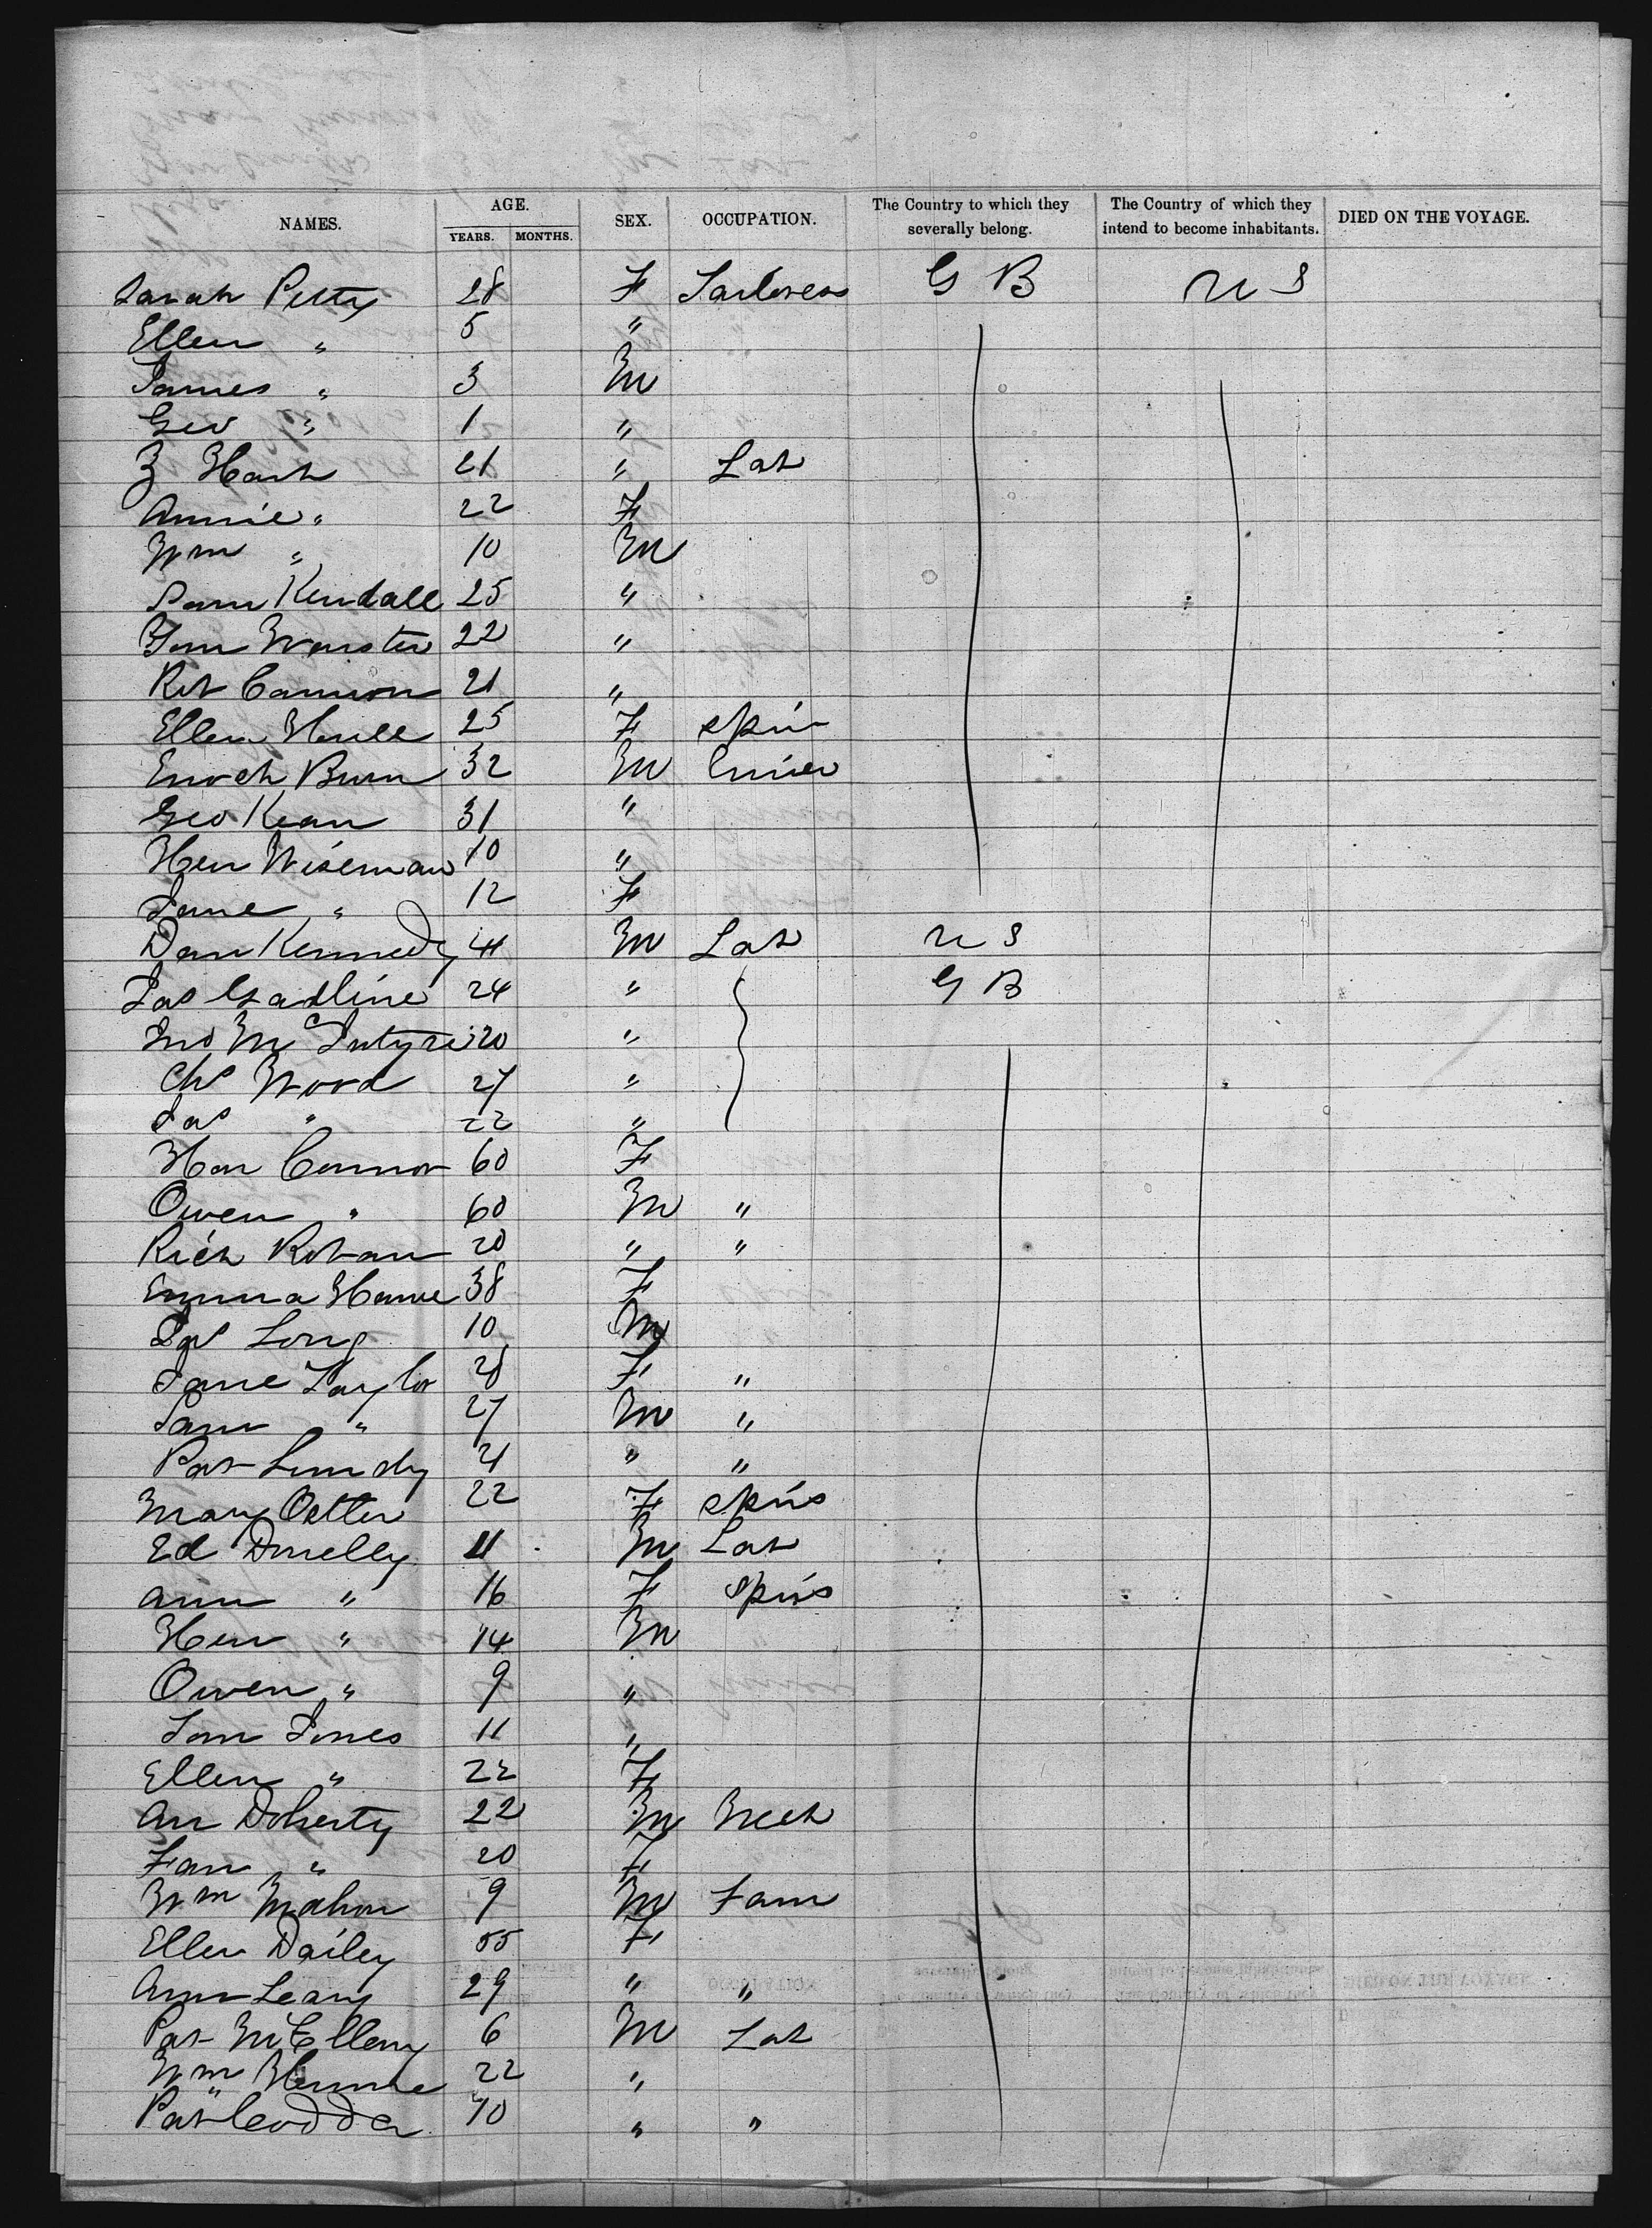 NAMES. AGE. YEARS. MONTHS. SEX. OCCUPATION. The Country to which they severally belong. The Country of which they intend to become inhabitants. DIED ON THE VOYAGE.
Sarah Petty 28 F Tailoress G B U S
Ellen " 5 "
James " 3 M
Geo " 1 "
Z Hart 21 " Lab
Annie " 22 F
Wm " 10 M
Sam Kendall 25 "
Tom 22 "
Rot Cannon 21 "
Ellen 25 F Spin
Enoch Burn 32 M
Geo Kean 31 "
Hen Wiseman 10 "
Jane " 12 F
Dan Kennedy 41 M Lab U S
Jas Gadline 24 " G B
Jno McIntyre 20 "
Chs Wood 27 "
Jas " 22 "
Han Connor 60 F
Owen " 60 M "
Rich 20 " "
Emma Howe 38 F
Jas Long 10 M
Jane Taylor 28 F "
Sam " 27 M "
Pat Lundy 21 " "
Mary 22 F Spin
Ed Donelly 11 M Lab
Ann " 16 F Spin
Hen " 14 M
Owen " 9 "
Tom Jones 11 "
Ellen " 22 F
An Doherty 22 M Mech
Fan " 20 F
Wm Mahon 9 M Farm
Ellen Dailey 55 F
Ann Leary 29 " "
Pat McElleny 6 M Lab
Wm 22 "
Pat Codder 70 " "